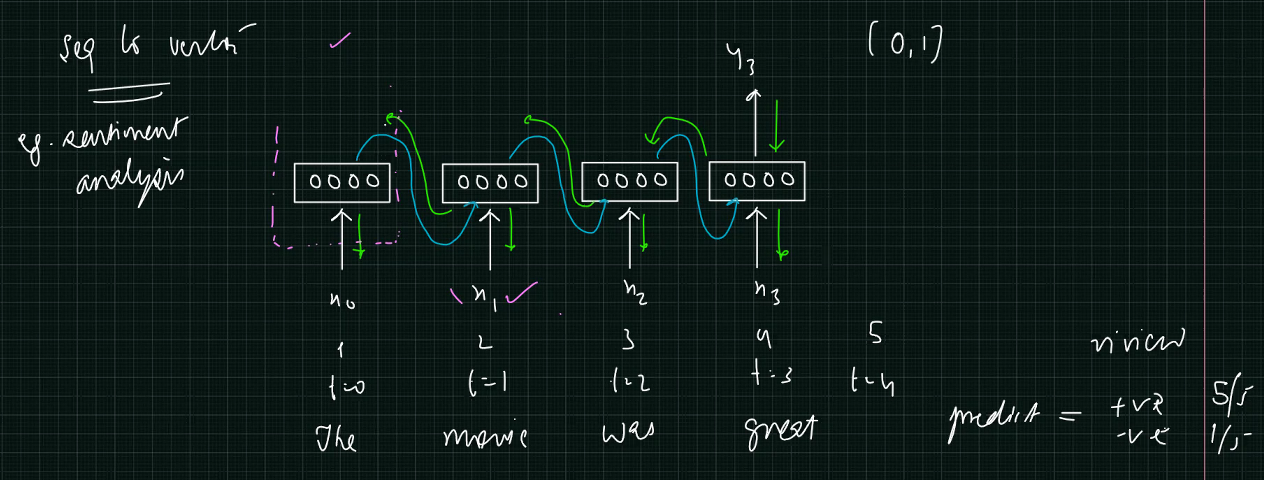 seq to vector
eg. sentiment
analysis
y3
(0,1)
0000 0000 0000 0000
x0 x1 x2 x3
1 2 3 4 5
t=0 t=1 t=2 t=3 t=4
The movie was great
review
predict = +ve 5/5
-ve 1/5